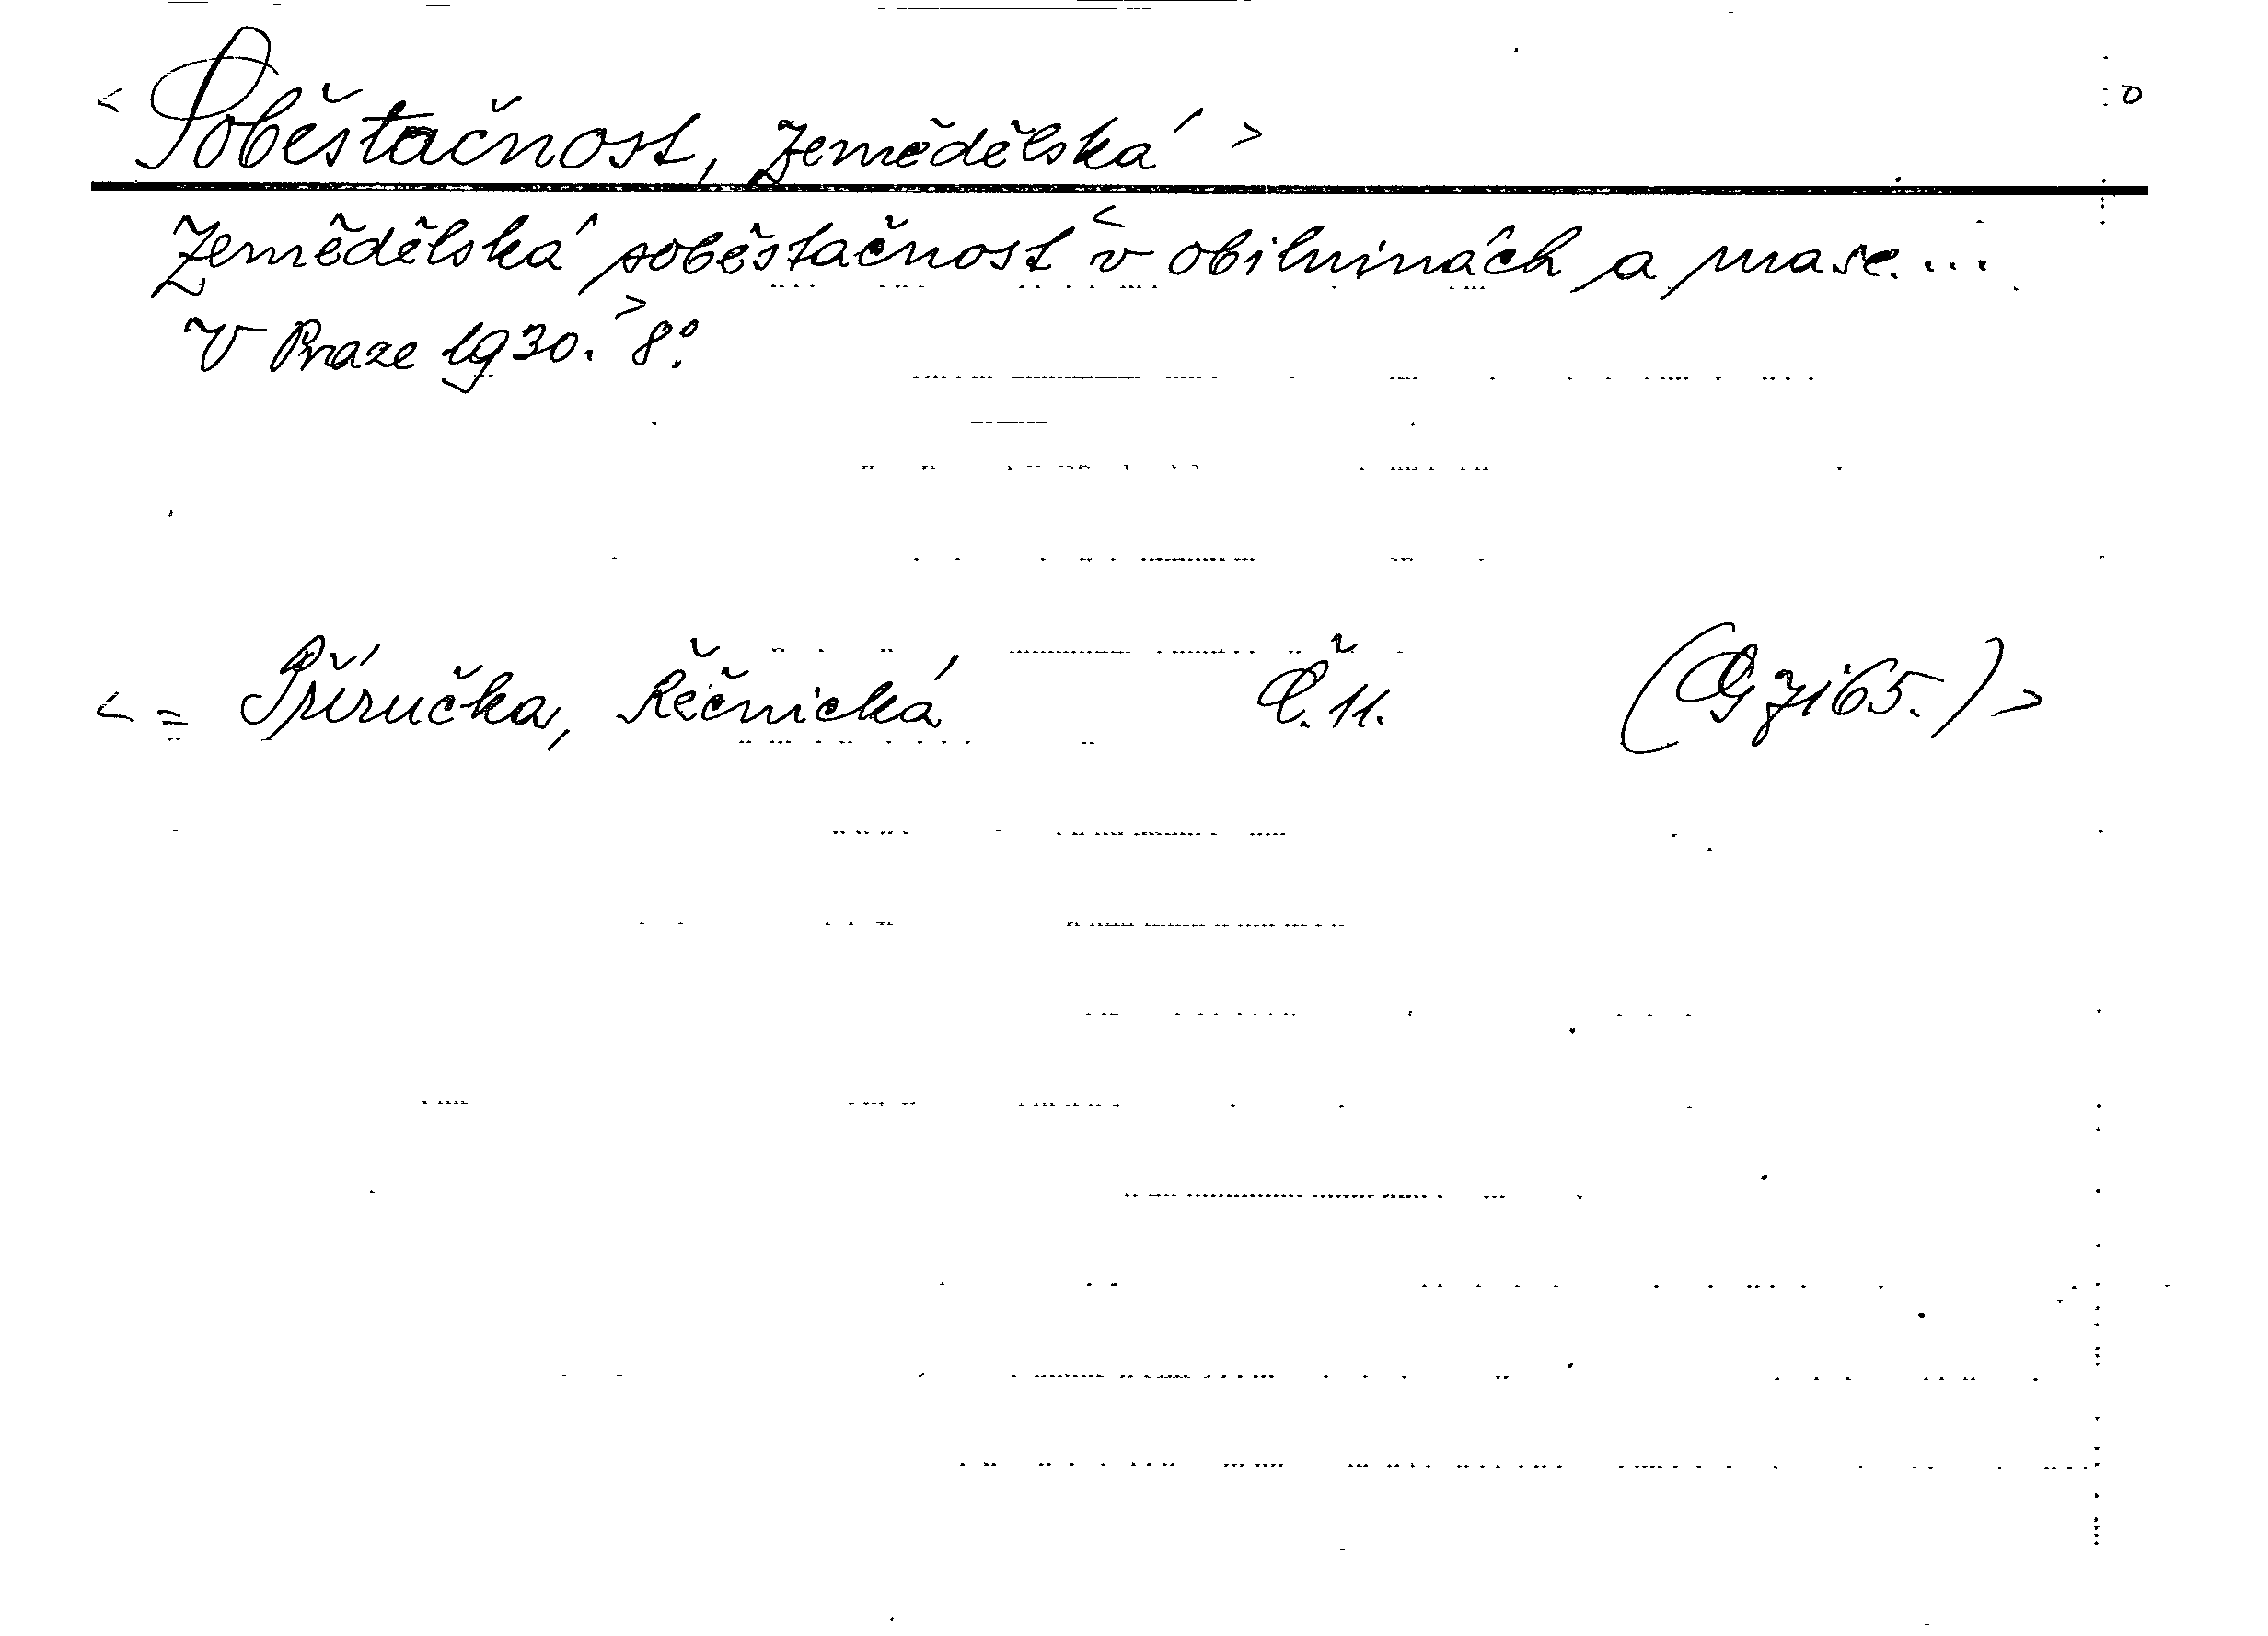 < Soběstačnost, zemědělská >
Zemědělská soběstačnost < v obilninách a mase. ...
V Praze 1930. > 8º.
< = Příručka, Řečnická Č. 11. >